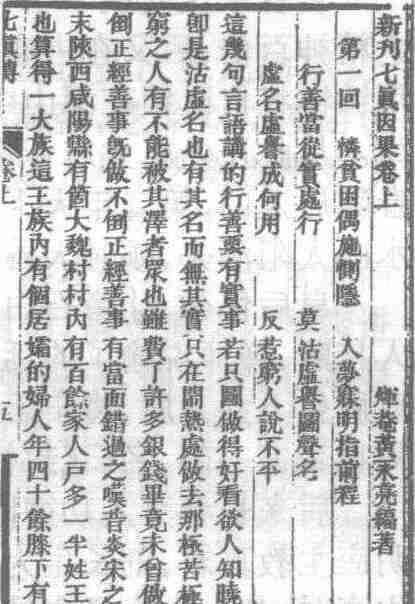 新刊七眞因果卷上　煇菴黃永亮編著
第一回　憐貧困偶施惻隱　入夢寐明指前程
行善當從實處行　莫沽虛譽圖聲名
虛名虛譽成何用　反惹窮人說不平
這幾句言語講的行善要有實事若只圖做得好看欲人知曉
卽是沽虛名也有其名而無其實只在鬧熱處做去那極苦極
窮之人有不能被其澤者眾也雖費了許多銀錢畢竟未曾做
倒正經善事旣做不倒正經善事有當面錯過之嘆昔炎宋之
末陝西咸陽縣有箇大魏村村內有百餘家人戶多一半姓王
也算得一大族這王族內有個居孀的婦人年四十餘膝下有
七眞傳　卷上